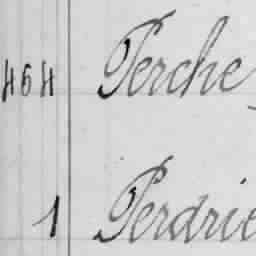 464 Perche
1 Perdrie